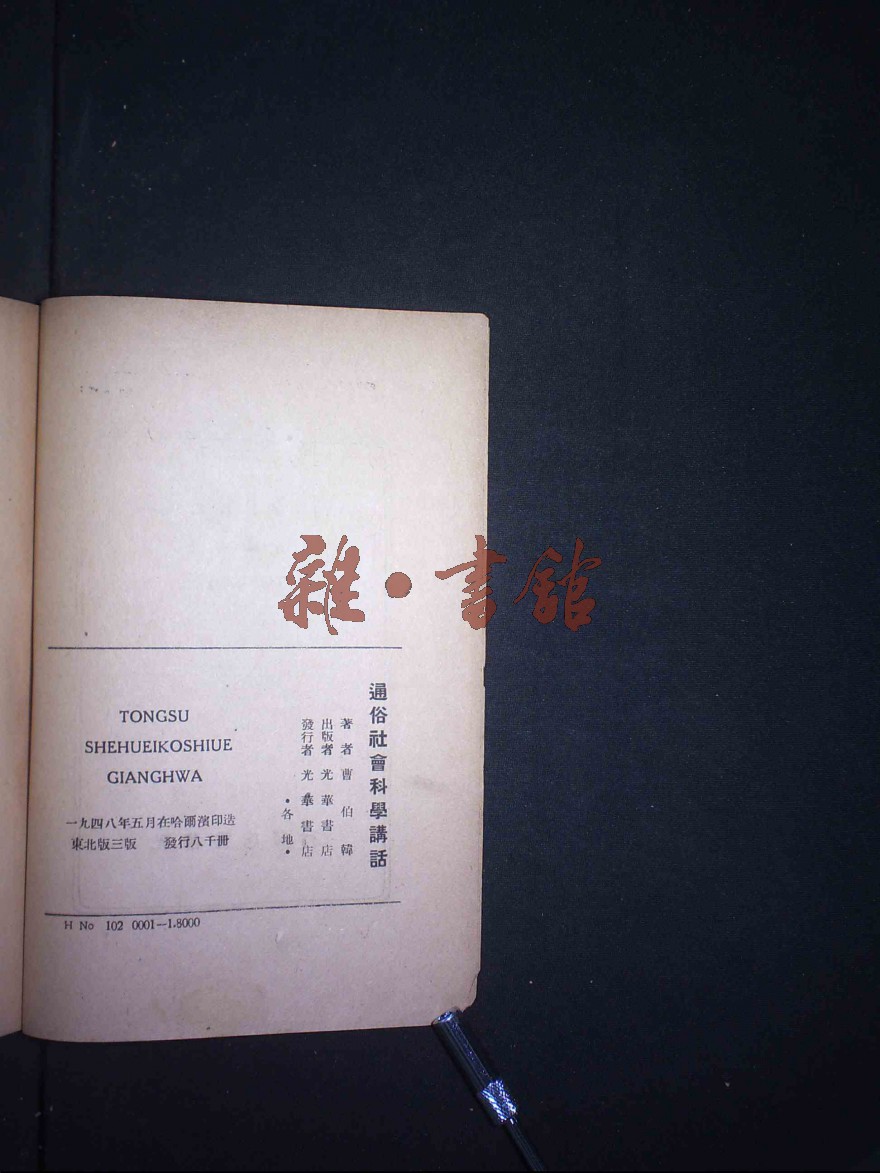 通俗社會科學講話
著者 曹伯韓
出版者 光華書店
發行者 光華書店
·各地·
TONGSU
SHEHUEIKOSHIUE
GIANGHWA
一九四八年五月在哈爾濱印造
東北版三版 發行八千冊
H No 102 0001—1.8000
雜·書館